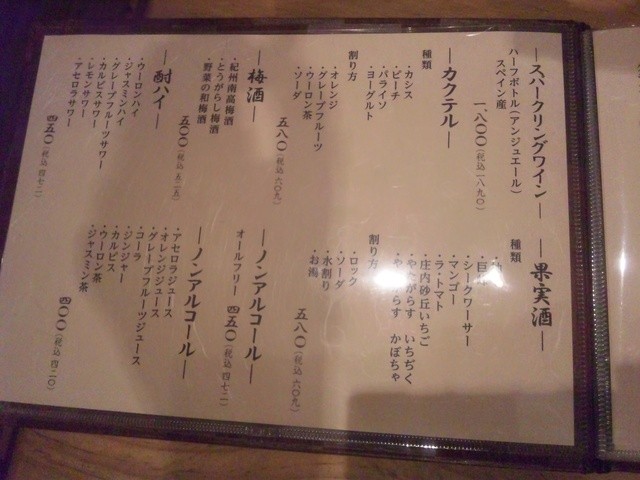 ―スパークリングワイン―
ハーフボトル(アンジュエール)
スペイン産
一、八〇〇(税込一八九〇)
―カクテル―
種類
・カシス
・ピーチ
・パライソ
・ヨーグルト
割り方
・オレンジ
・グレープフルーツ
・ウーロン茶
・ソーダ
五八〇(税込六〇九)
―梅酒―
・紀州南高梅酒
・とうがらし梅酒
・野菜の和梅酒
五〇〇(税込五二五)
―酎ハイ―
・ウーロンハイ
・ジャスミンハイ
・グレープフルーツサワー
・カルピスサワー
・レモンサワー
・アセロラサワー
四五〇(税込四七二)
―果実酒―
種類
・巨
・シークワーサー
・マンゴー
・ラ・トマト
・庄内砂丘いちご
・やたがらす いちぢく
かぼちゃ
割り方
・ロック
・ソーダ
・水割り
・お湯
五八〇(税込六〇九)
―ノンアルコール―
オールフリー 四五〇(税込四七二)
―ノンアルコール―
・アセロラジュース
・オレンジジュース
・グレープフルーツジュース
・コーラ
・ジンジャー
・カルピス
・ウーロン茶
・ジャスミン茶
四〇〇(税込四二〇)